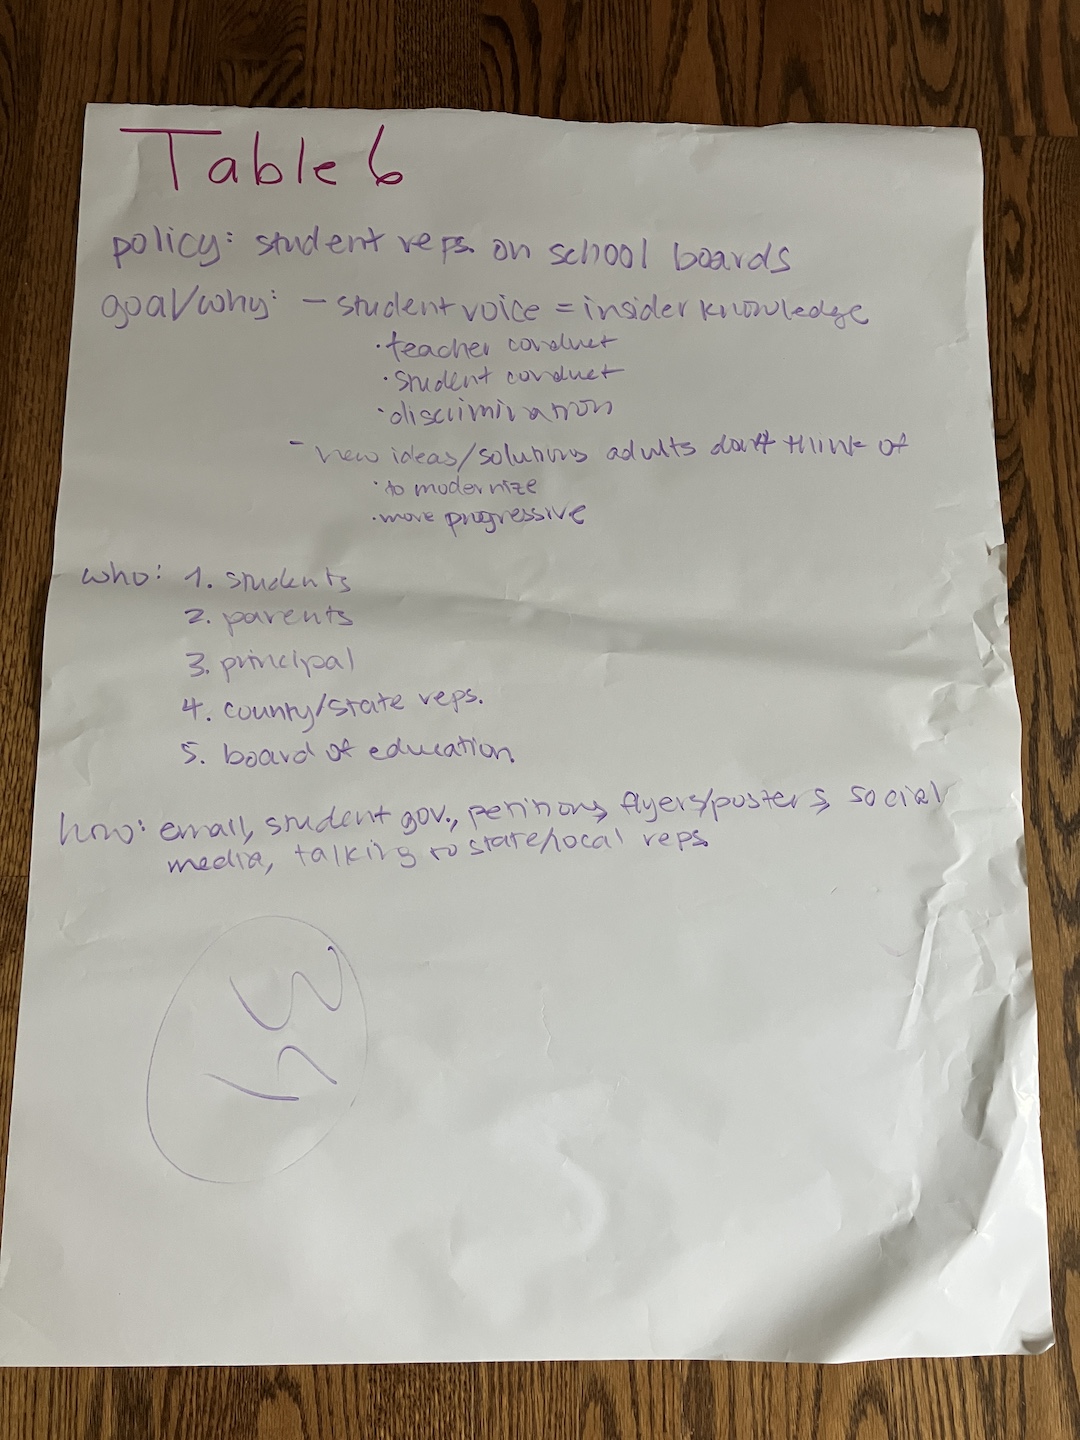 Table 6
policy: student reps. on school boards
goal/why: - student voice = insider knowledge
· teacher conduct
· student conduct
· discrimination
- new ideas/solutions adults don't think of
· to modernize
· more progressive
who: 1. students
2. parents
3. principal
4. county/state reps.
5. board of education
how: email, student gov., petitions, flyers/posters, social
media, talking to state/local reps.